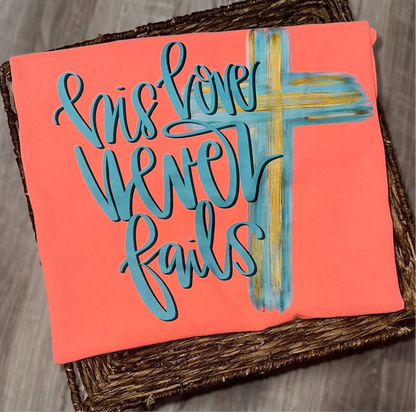 his love
never
fails